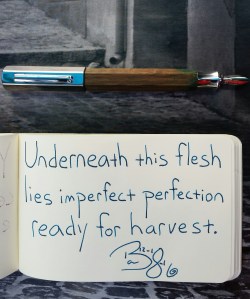 Underneath this flesh
lies imperfect perfection
ready for harvest.